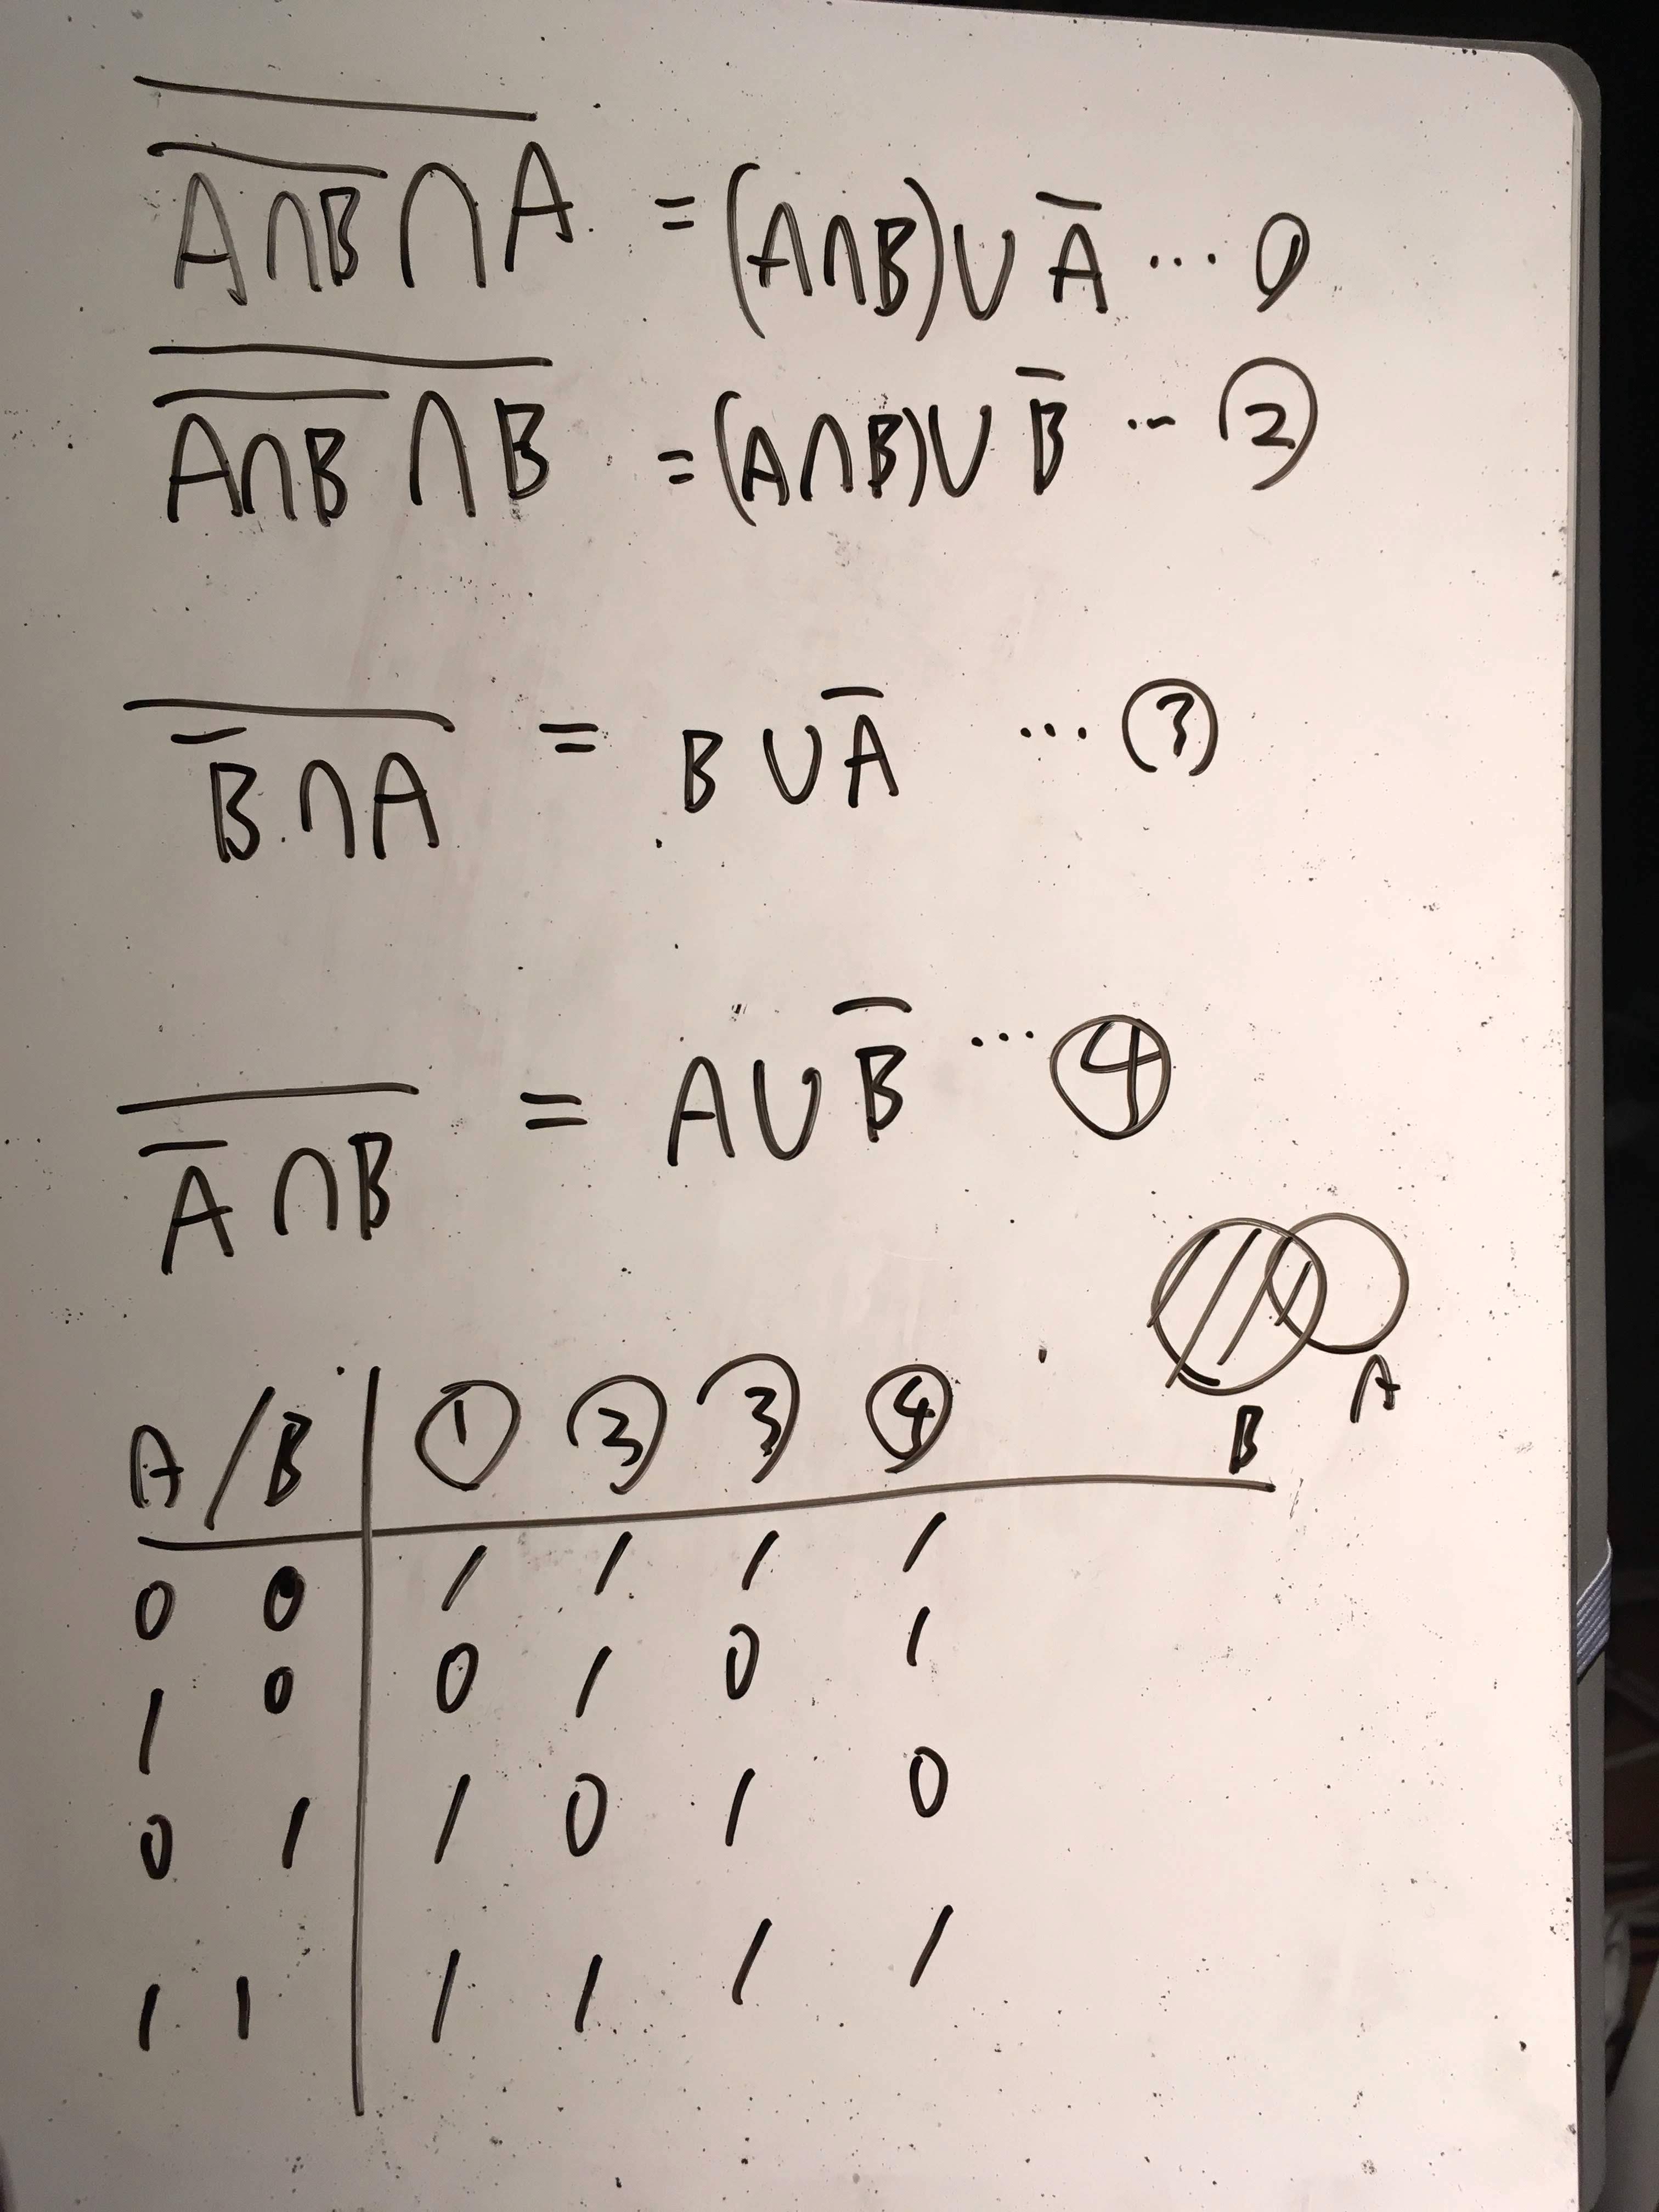 $\overline{\overline{A∩B}∩A}$ = (A∩B)∪$\overline{A}$ ... ①
$\overline{\overline{A∩B}∩B}$ = (A∩B)∪$\overline{B}$ ... ②
$\overline{\overline{B}∩A}$ = B∪$\overline{A}$ ... ③
$\overline{\overline{A}∩B}$ = A∪$\overline{B}$ ... ④
B A
A/B | ① ③ ③ ④
0 0 | 1 1 1 1
1 0 | 0 1 0 1
0 1 | 1 0 1 0
1 1 | 1 1 1 1